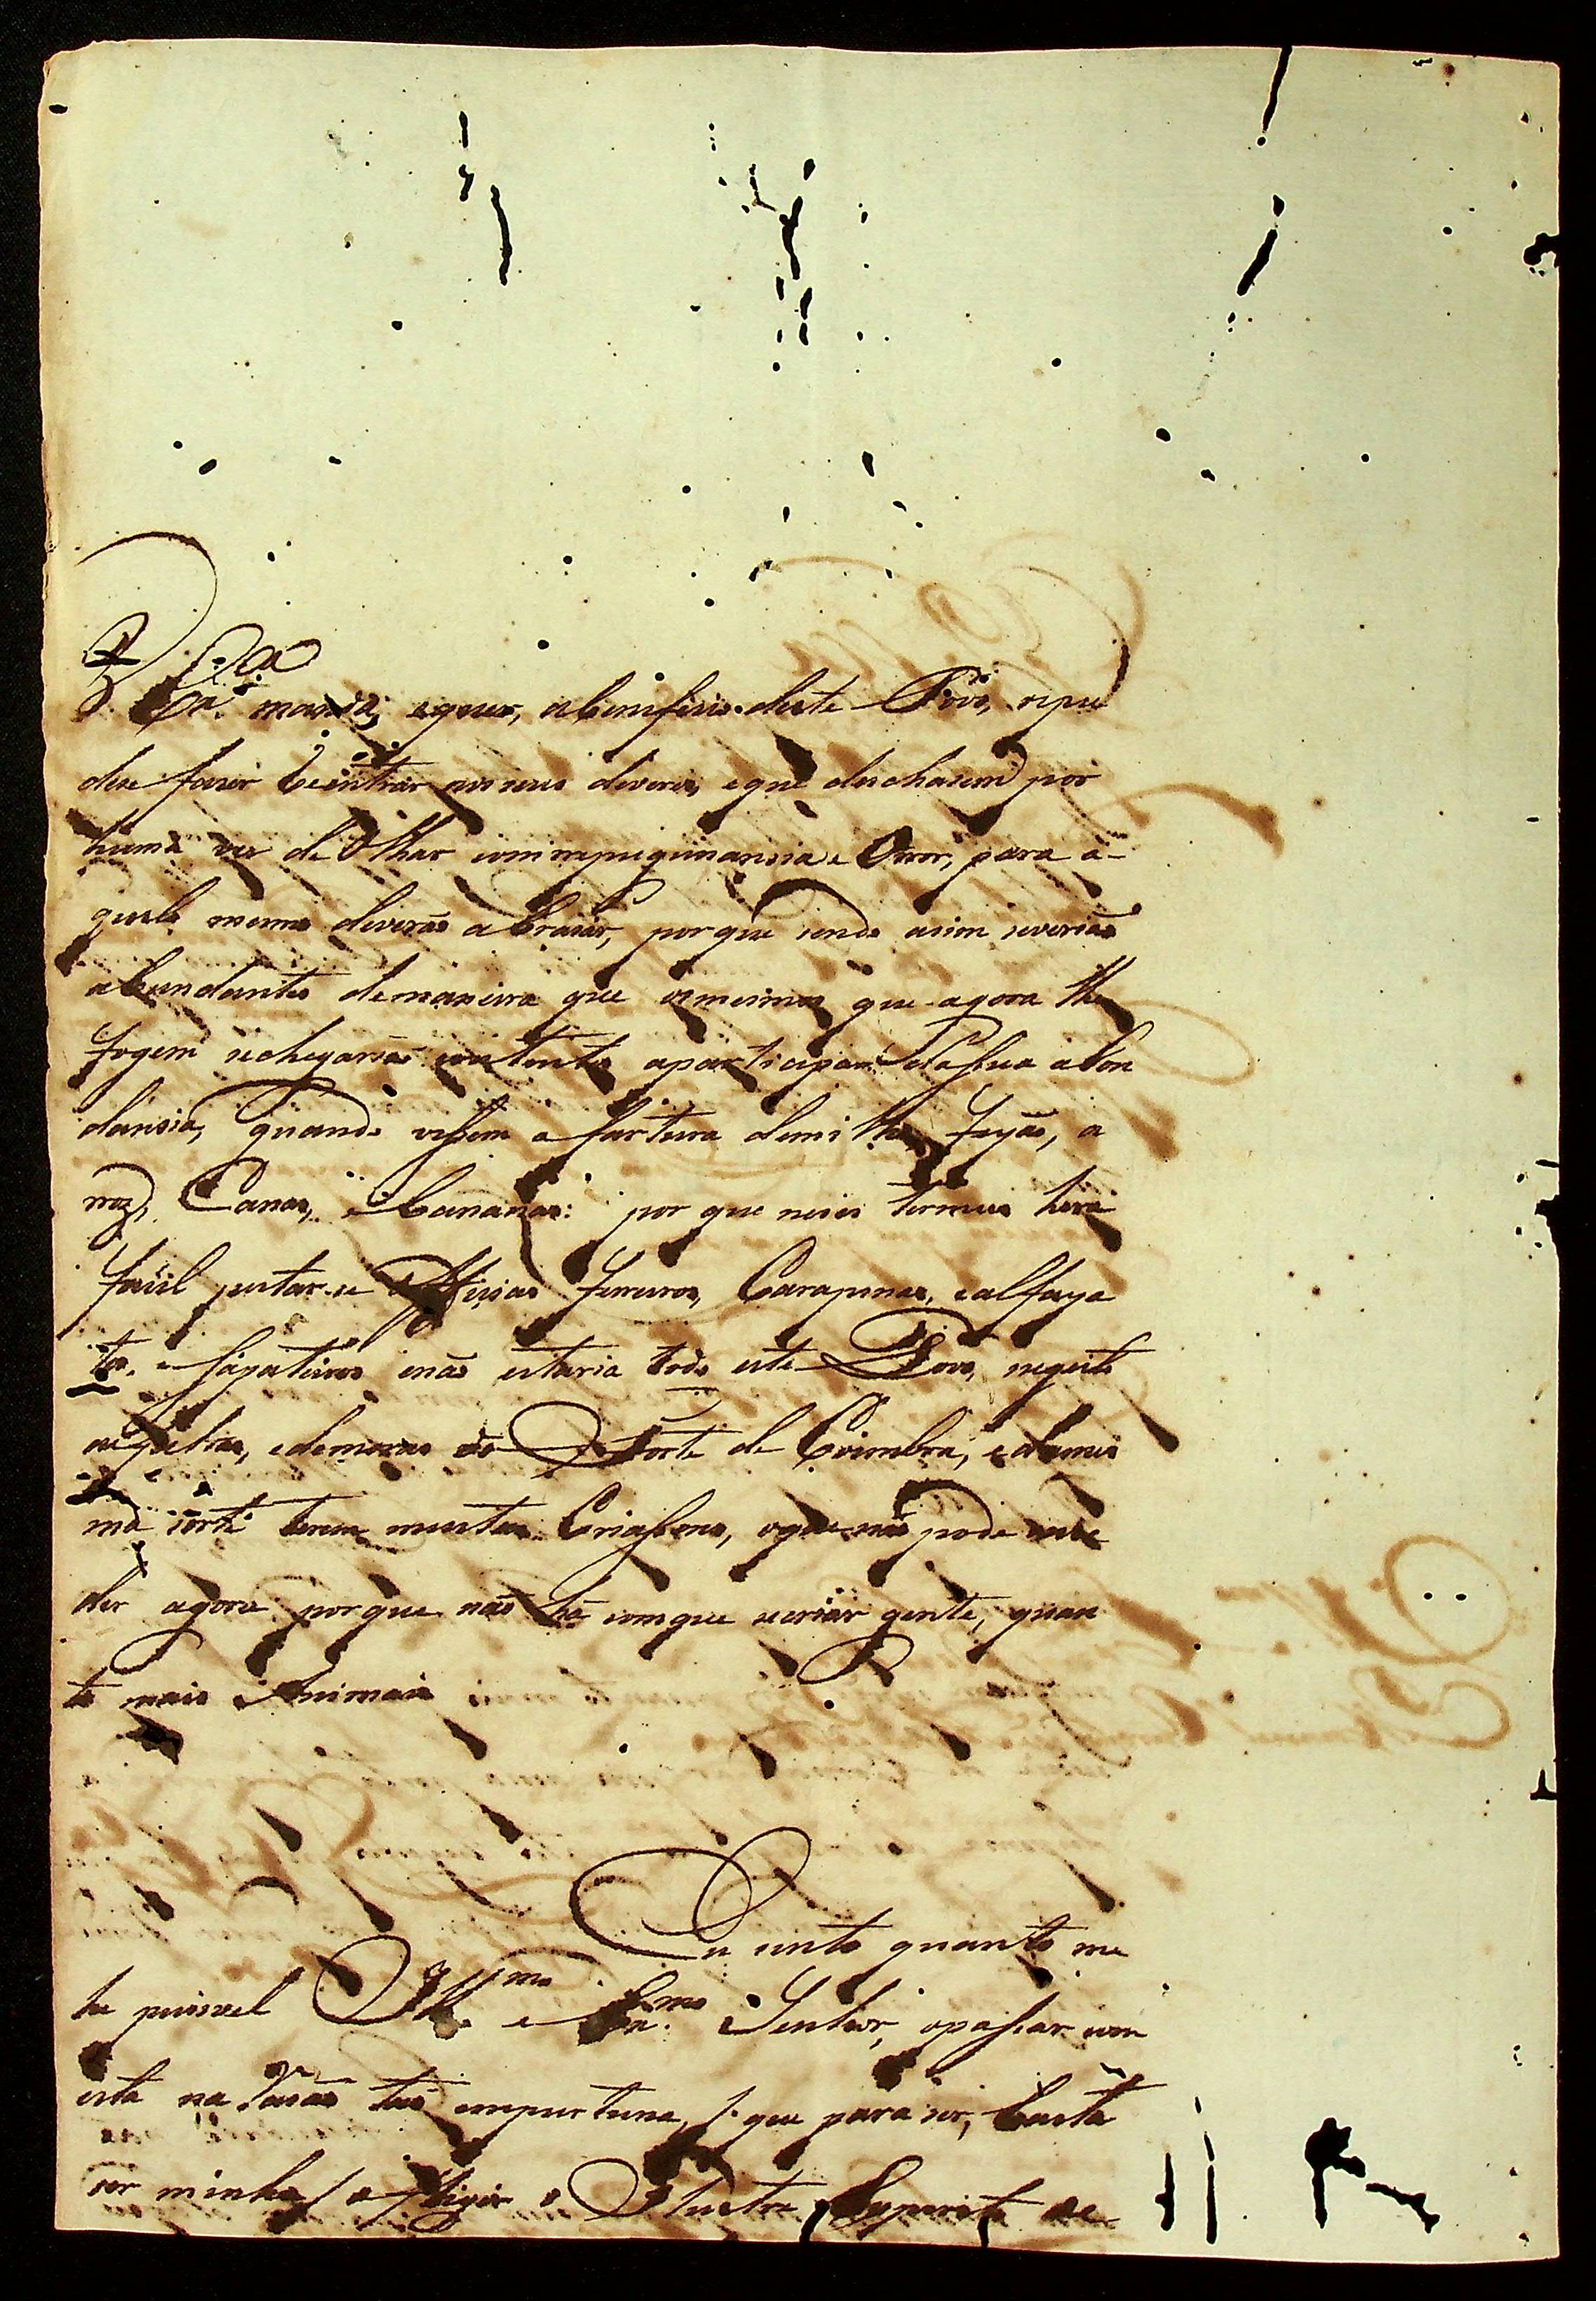 Ex.ª manda, e quer, a beneficio deste Povo, se pu
dese faser Reentrar nos seus deveres, e que deichasem por
huma vez de Olhar com repugnansia e Oror, para a-
quelo mesmo deverião abrasar, porque sendo asim se verião
abundantes de maneira que os mesmos que agora lhe
fogem se chegarião contentes a participar da sua abon
dansia, quando vissem a fartura de milho, feyão, a
rroz, Canas, e bananas: por que neses termos hera
facil justar-se Officiaes ferreiros, Carapinas, e alfaya
tes, e sapateiros e não estaria todo este Povo, sugeito
as quebras, e demoras do Forte de Coimbra, e da mes
ma sorte terem muitas Criasions, o que não pode suce
der agora porque não há com que se criar gente, quan
to mais Animais
Eu sinto quanto me
he pussivel Ill.mo e Ex.mo Senhor, o passar com
esta narasão tão emportuna, /: que para ser, basta
ser minha / afligir o Ilustre Esperito de